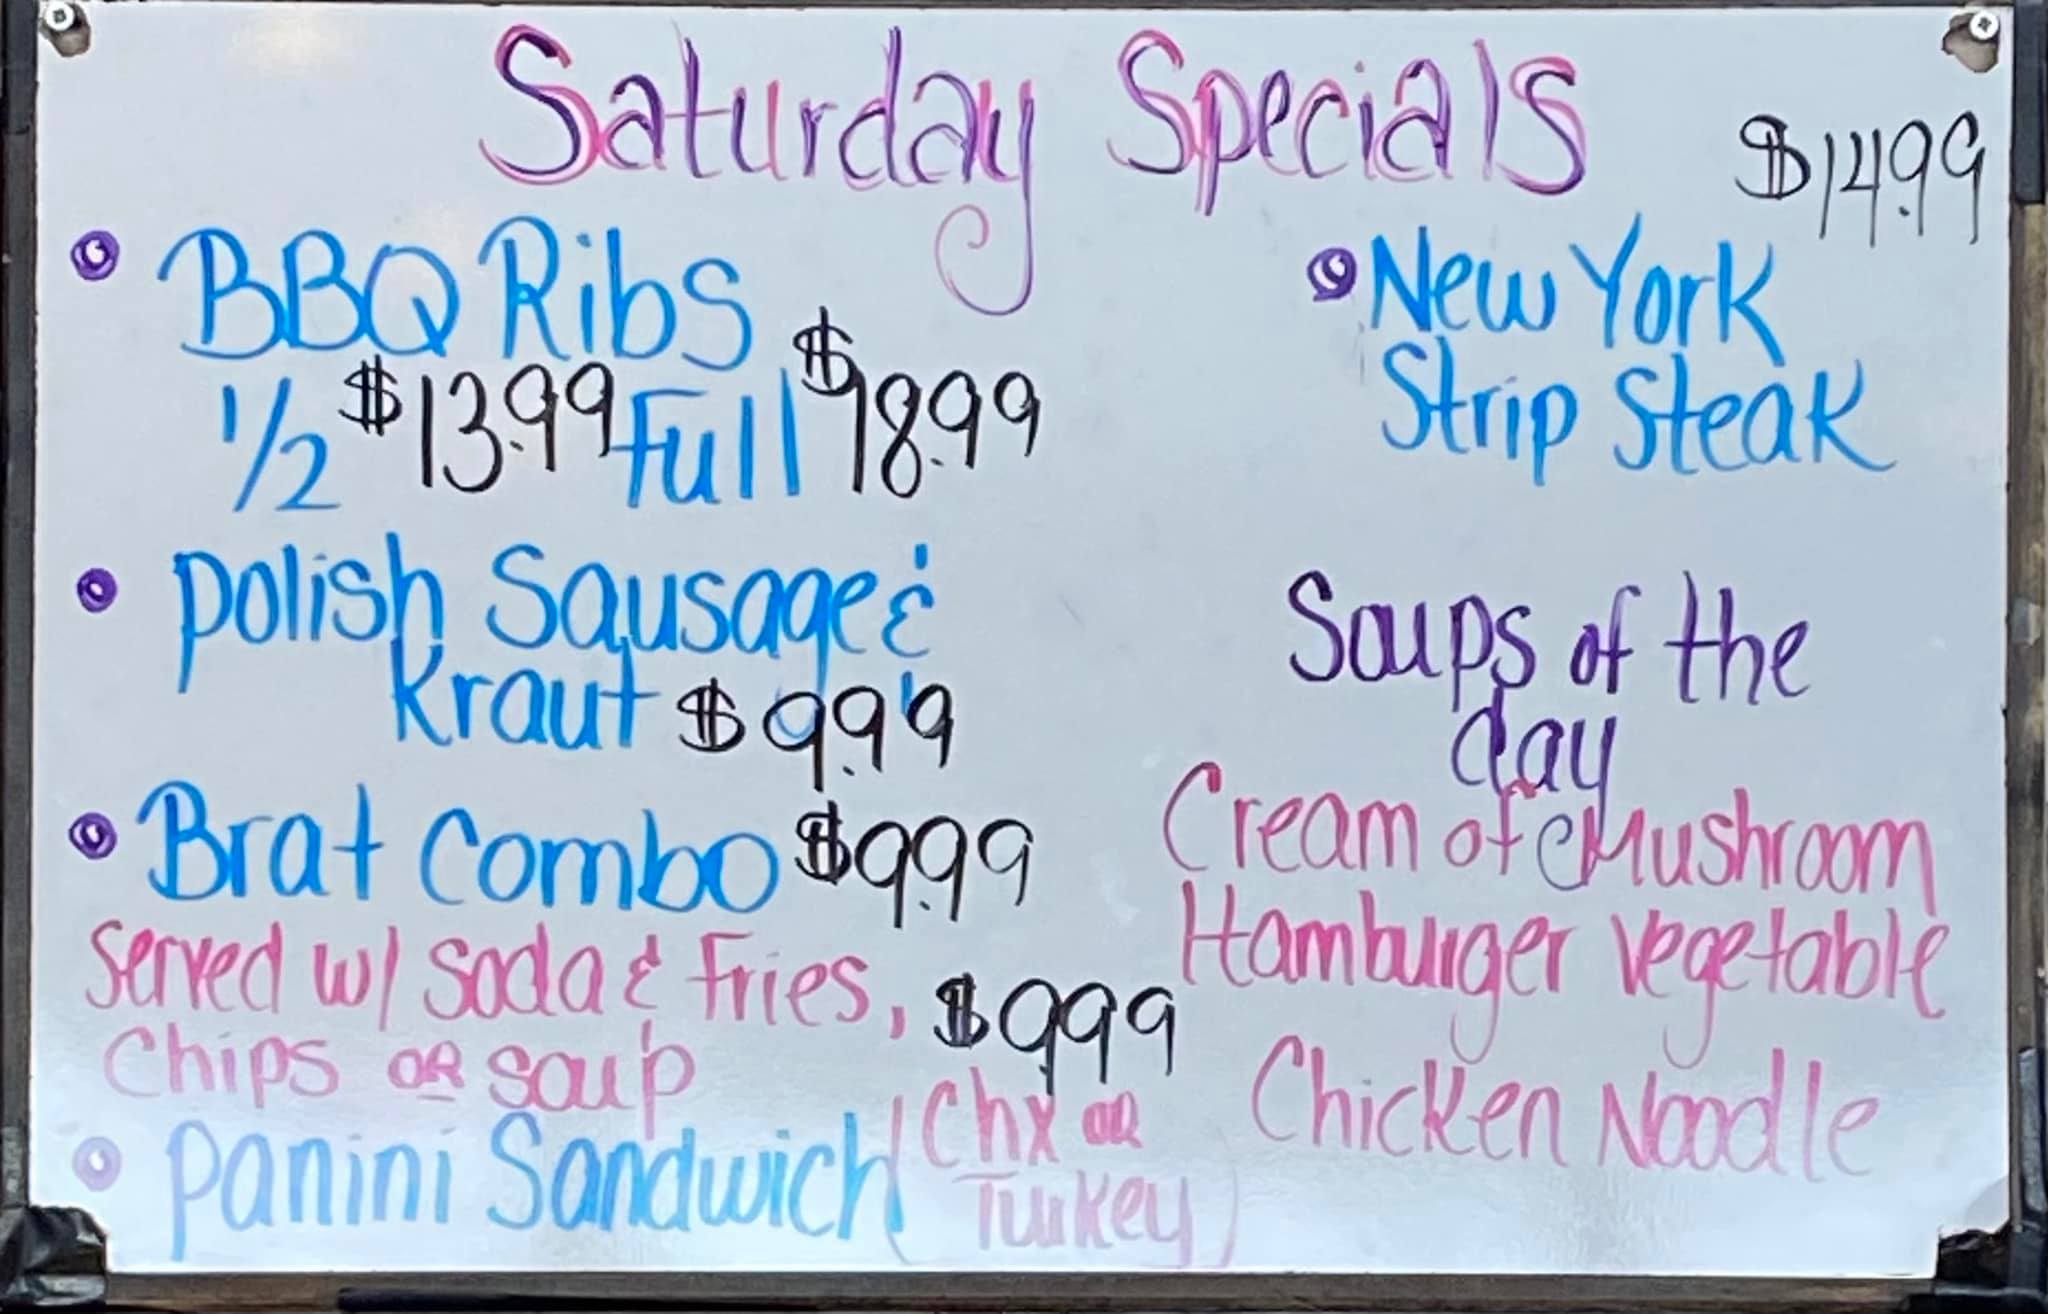 Saturday Specials
• BBQ Ribs
1/2 $13.99 Full $18.99
• Polish Sausage &
Kraut $9.99
• Brat Combo $9.99
Served w/ Soda & Fries,
Chips OR Soup
$9.99
• Panini Sandwich (Chx OR
Turkey)
$14.99
• New York
Strip Steak
Soups of the
day
Cream of Mushroom
Hamburger Vegetable
Chicken Noodle